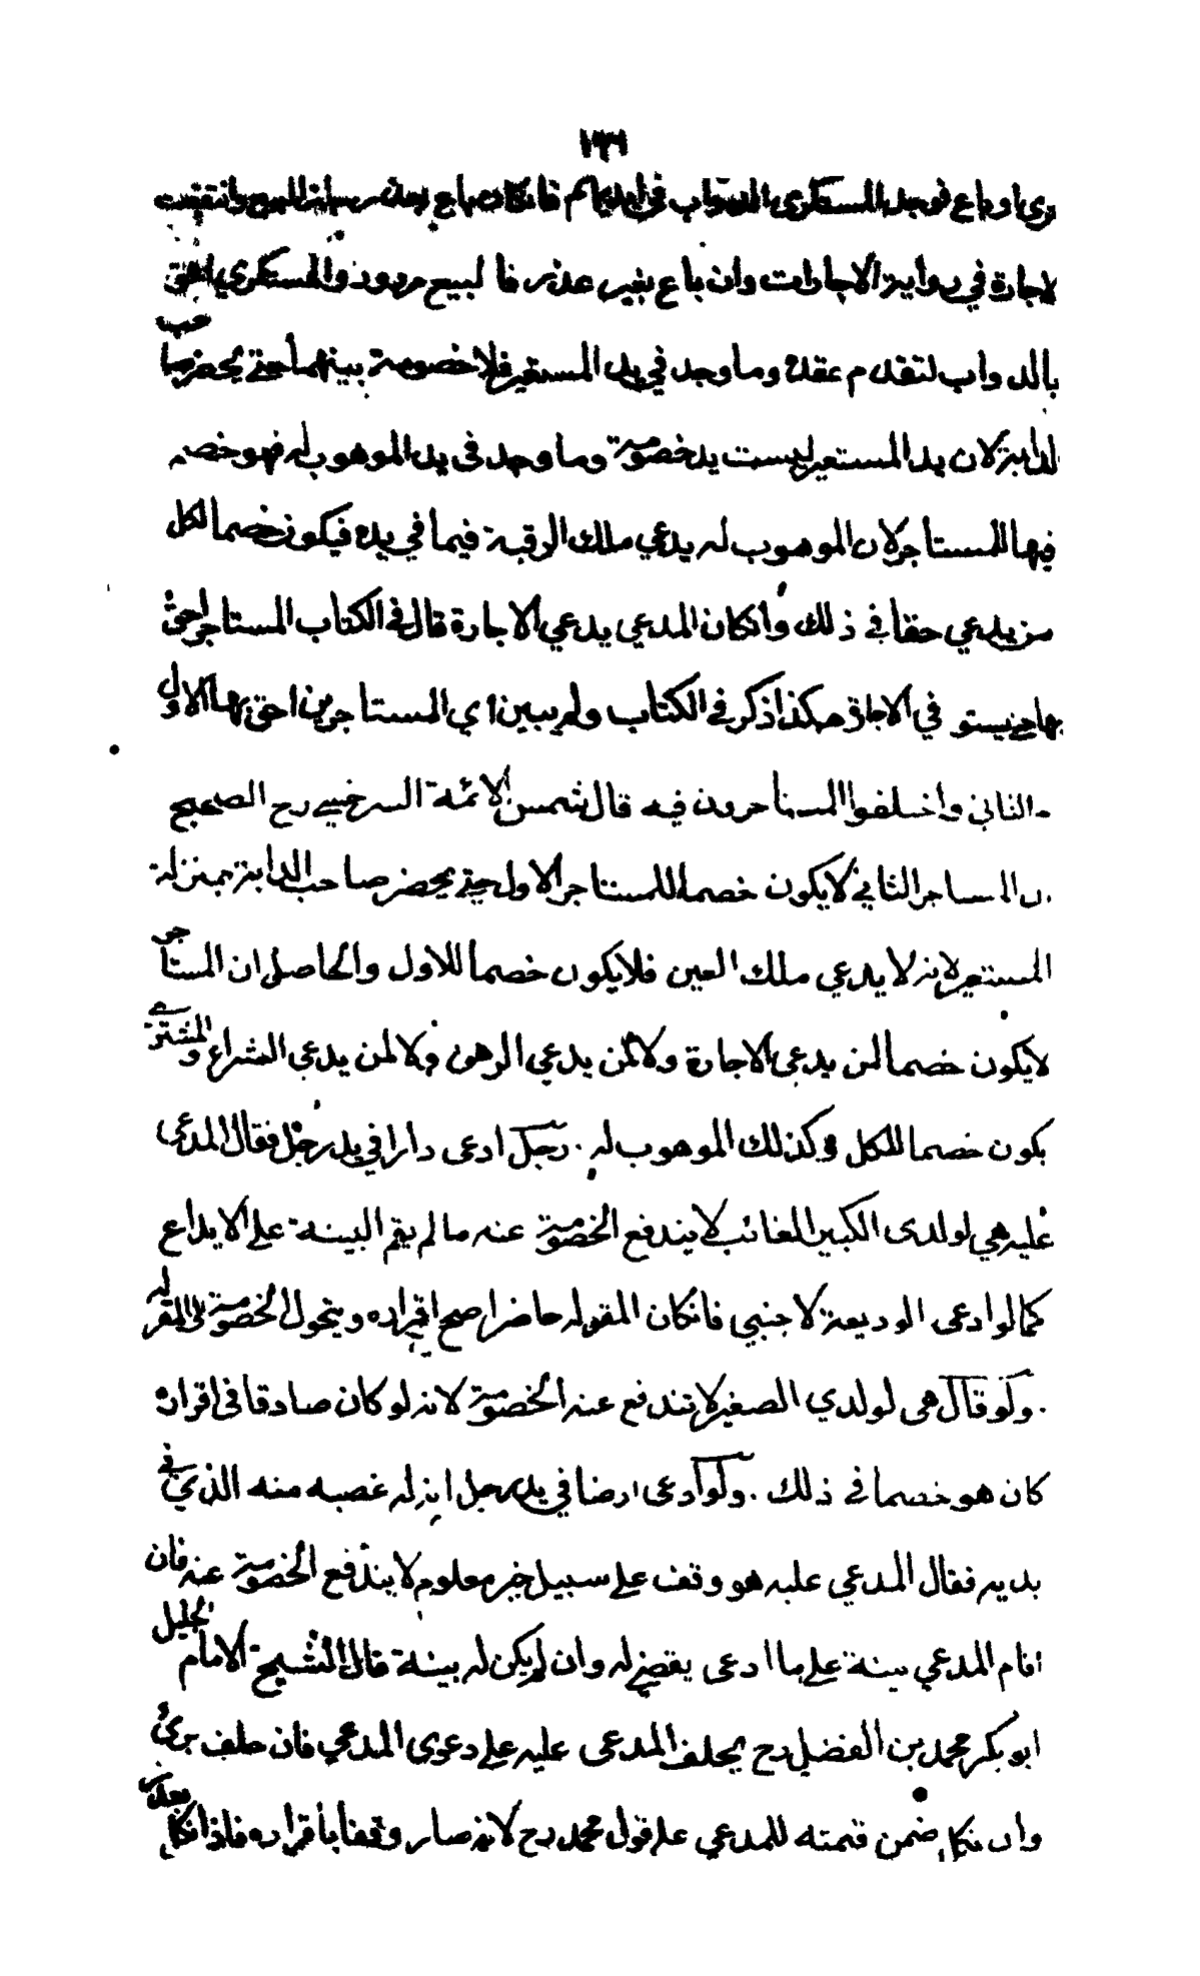 ١٣٦
اوباع فوجد المستكري الدواب في ايديهم فانكان باع بعذر جاز البيع وانتقضت
لاجارة في رواية الاجارات وان باع بغير عذر فالبيع مردود والمستكري احق
بالدواب لتقدم عقده وما وجد في يد المستعير فلا خصومة بينهما حتى يحضر صاحب
لدابة لان يد المستعير ليست يد خصومة وما وجد في يد الموهوب له فهو خصم
فيها للمستأجر لان الموهوب له يدعي ملك الرقبة فيما في يده فيكون خصما لكل
من يدعي حقا في ذلك وانكان المدعي يدعي الاجارة قال في الكتاب المستاجر احق
بها حتى يستوفي الاجارة هكذا ذكر في الكتاب ولم يبين اي المستاجرين احق بها الاول
و الثاني واختلفوا المستاخرون فيه قال شمس الائمة السرخسي رح الصحيح
ان المستاجر الثاني لا يكون خصما للمستاجر الاول حتى يحضر صاحب الدابة بمنزلة
المستعير لانه لا يدعي ملك العين فلا يكون خصما للاول والحاصل ان المستاجر
لا يكون خصما لمن يدعي الاجارة ولا لمن يدعي الرهن ولا لمن يدعي الشراء والمشتري
يكون خصما للكل وكذلك الموهوب له . رجل ادعى دارا في يد رجل فقال المدعى
عليه هي لولدى الكبير الغائب لا يندفع الخصومة عنه ما لم يقم البينة على الايداع
كما لو ادعى الوديعة لاجنبي فانكان المقر له حاضرا صح اقراره ويتحول الخصومة الى المقر له
. ولو قال هي لولدي الصغير لا تندفع عنه الخصومة لانه لو كان صادقا في اقراره
كان هو خصما في ذلك . ولو ادعى ارضا في يد رجل انه له غصبه منه الذي في
يديه فقال المدعي عليه هو وقف على سبيل خير معلوم لا يندفع الخصومة عنه فان
اقام المدعي بينة على ما ادعى يقضي له وان لم يكن له بينة قال الشيخ الامام الجليل
ابو بكر محمد بن الفضل رح يحلف المدعى عليه على دعوى المدعي فان حلف برئ
وان نكل ضمن قيمته للمدعي على قول محمد رح لانه صار وقفا باقراره فاذا نكل بعد